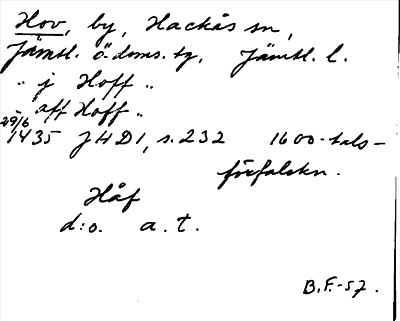 Hov, by, Hackås sn,
Jämtl. ö. doms. tg, Jämtl. l.
„ j Hoff „
„ aff Hoff „
29/6
1435 JHD1, s. 232 1600-tals-
förfalskn.
Håf
d:o. a. t.
B.F.-57.